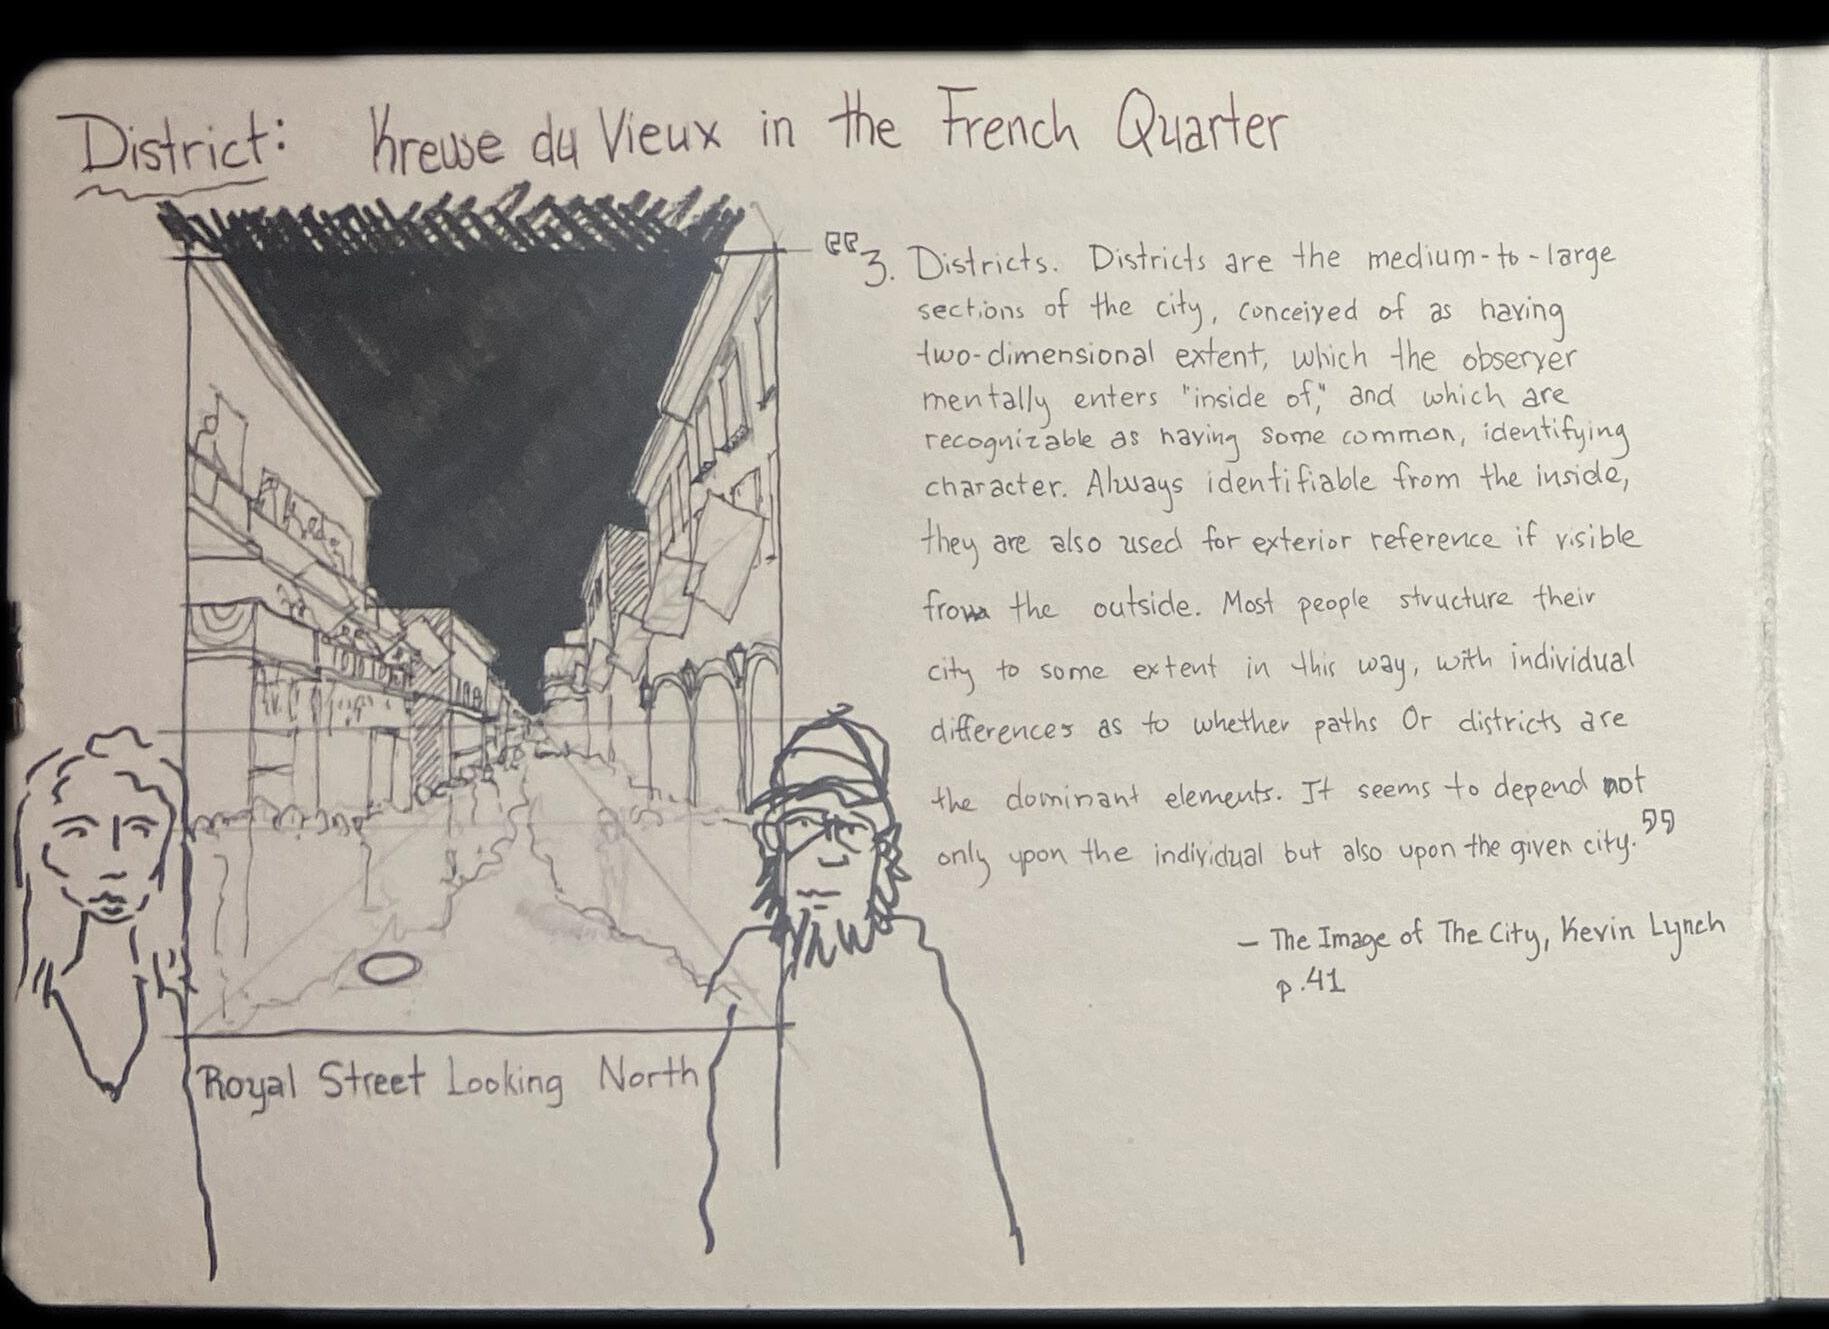 District: Krewe du Vieux in the French Quarter
“3. Districts. Districts are the medium-to-large
sections of the city, conceived of as having
two-dimensional extent, which the observer
mentally enters "inside of," and which are
recognizable as having some common, identifying
character. Always identifiable from the inside,
they are also used for exterior reference if visible
from the outside. Most people structure their
city to some extent in this way, with individual
differences as to whether paths Or districts are
the dominant elements. It seems to depend not
only upon the individual but also upon the given city.”
— The Image of The City, Kevin Lynch
p.41
Royal Street Looking North